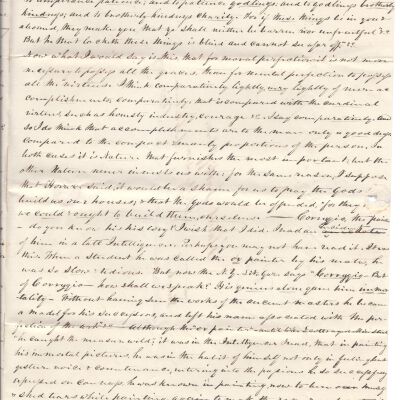 to temperance patience; and to patience godliness; and to godliness brotherly
kindness; and to brotherly kindness Charity. For if these things be in you &
abound, they make you that ye shall neither be barren nor unfruitful &c
But he that lacketh these things is blind and cannot see afar off &c.
Now what I would say is this, that for moral perfection it is not more
necessary to possess all the graces, than for mental perfection to possess
all the virtues. I think comparatively lightly, very lightly of mere ac
complishments, comparatively, that is compared with the cardinal
virtues such as honesty industry, courage &c. I say comparatively. And
so I do think that accomplishments are to the man only as good dress
compared to the compact manly proportions of the person. In
both cases it is Nature that furnishes the most important, but the
other Nature never intrusts us with; for the same reason, I suppose
that Horace said it would be a shame for us to pray the Gods to
build us our houses; that the Gods would be offended, for they
we could & ought to build them ourselves — Correggio, the painter
do you know his history? I wish that I did. I read an
of him in a late Intelligencer. Perhaps you may not have read it. It was
this. When a student he was called the ox painter by his mates, he
was so slow & tedious. But now the N. Y. says "Correggio - But
of Correggio - how shall we speak? His genius alone gave him immor
tality - Without having seen the works of the ancient masters he became
a model for his successors, and left his name associated with the per
fection of the artist -
he caught the measure
his immortal pictures, he was in the habit of himself not only
gesture voice & countenance, entering into the passions he so successfully
expressed on canvass, he was known in painting, now to
& shed tears while painting